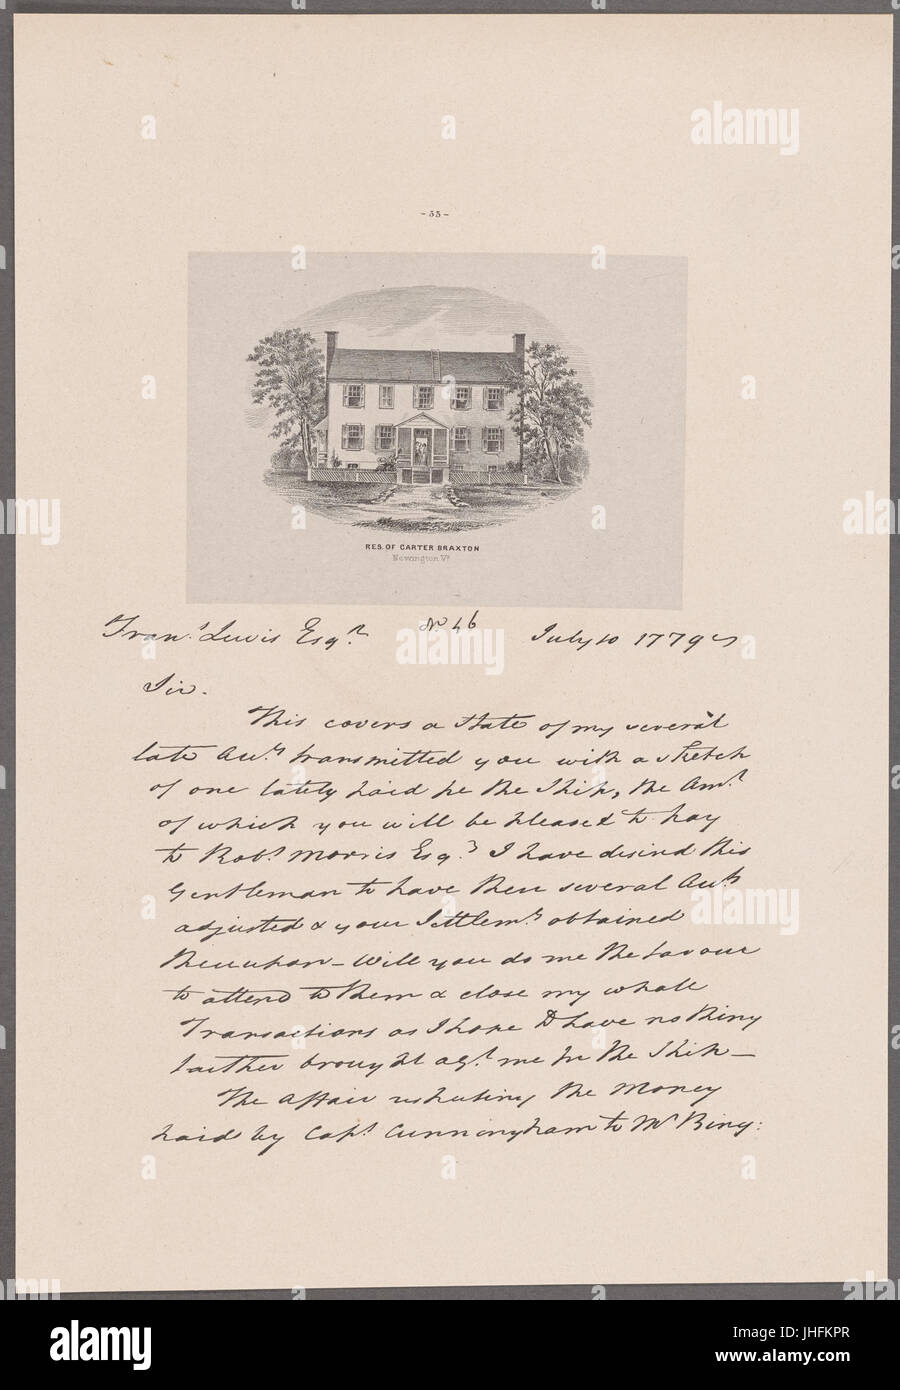 - 55 -
RES. OF CARTER BRAXTON
Newington Vª
Franˢ Lewis Esqʳ No 46 July 10 1779
Sir.
This covers a State of my several
late Acᵗˢ transmitted you with a sketch
of one lately paid pe the Ship, the Amᵗ
of which you will be pleased to pay
to Robᵗ Morris Esqʳ I have desired this
Gentleman to have these several Acᵗˢ
adjusted & your Settlemᵗ obtained
thereupon - Will you do me the favour
to attend to them & close my whole
Transactions as I hope to have nothing
farther brought agᵗ me pr the Ship -
The Affair respecting the Money
paid by Capᵗ Cunningham to Mʳ Bing:
alamy
alamy stock photo
JHFKPR
www.alamy.com